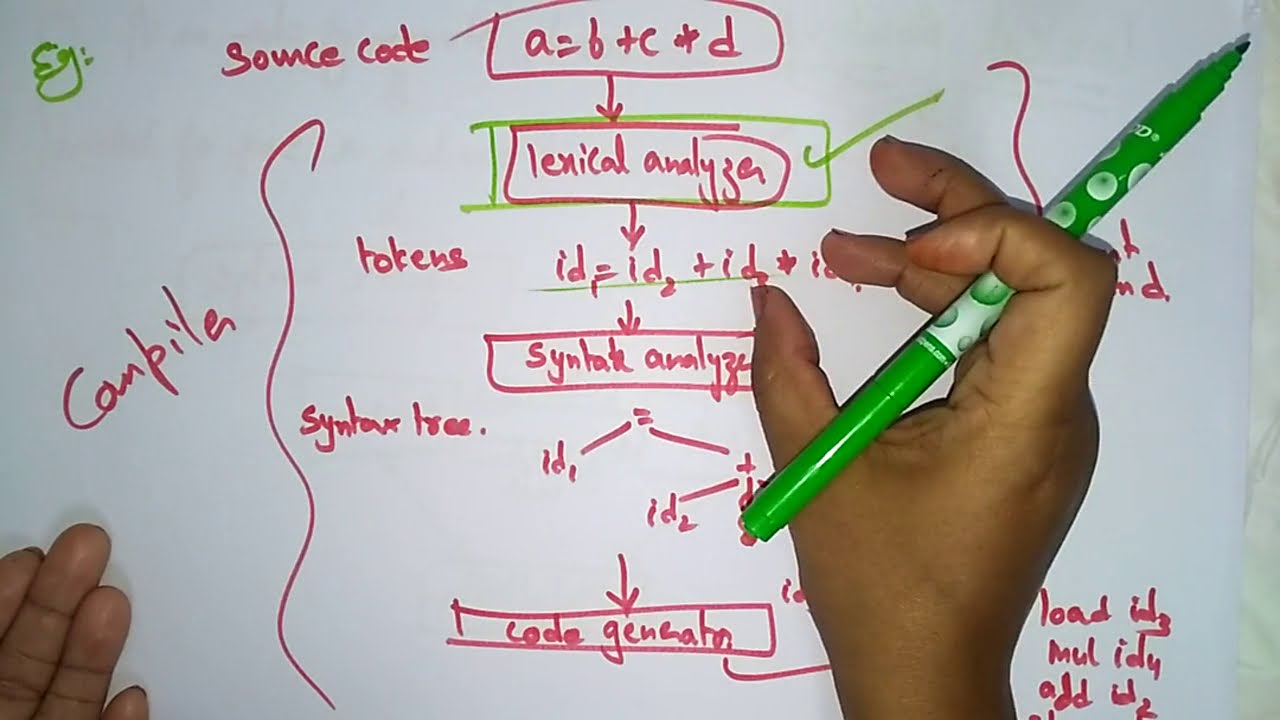 Eg:
source code
a = b + c * d
lexical analyzer
tokens
id1 = id2 + id3 * id
Compiler
Syntax analyze
Syntax tree.
=
id1
+
id2
code generator
load id3
mul id4
add id2